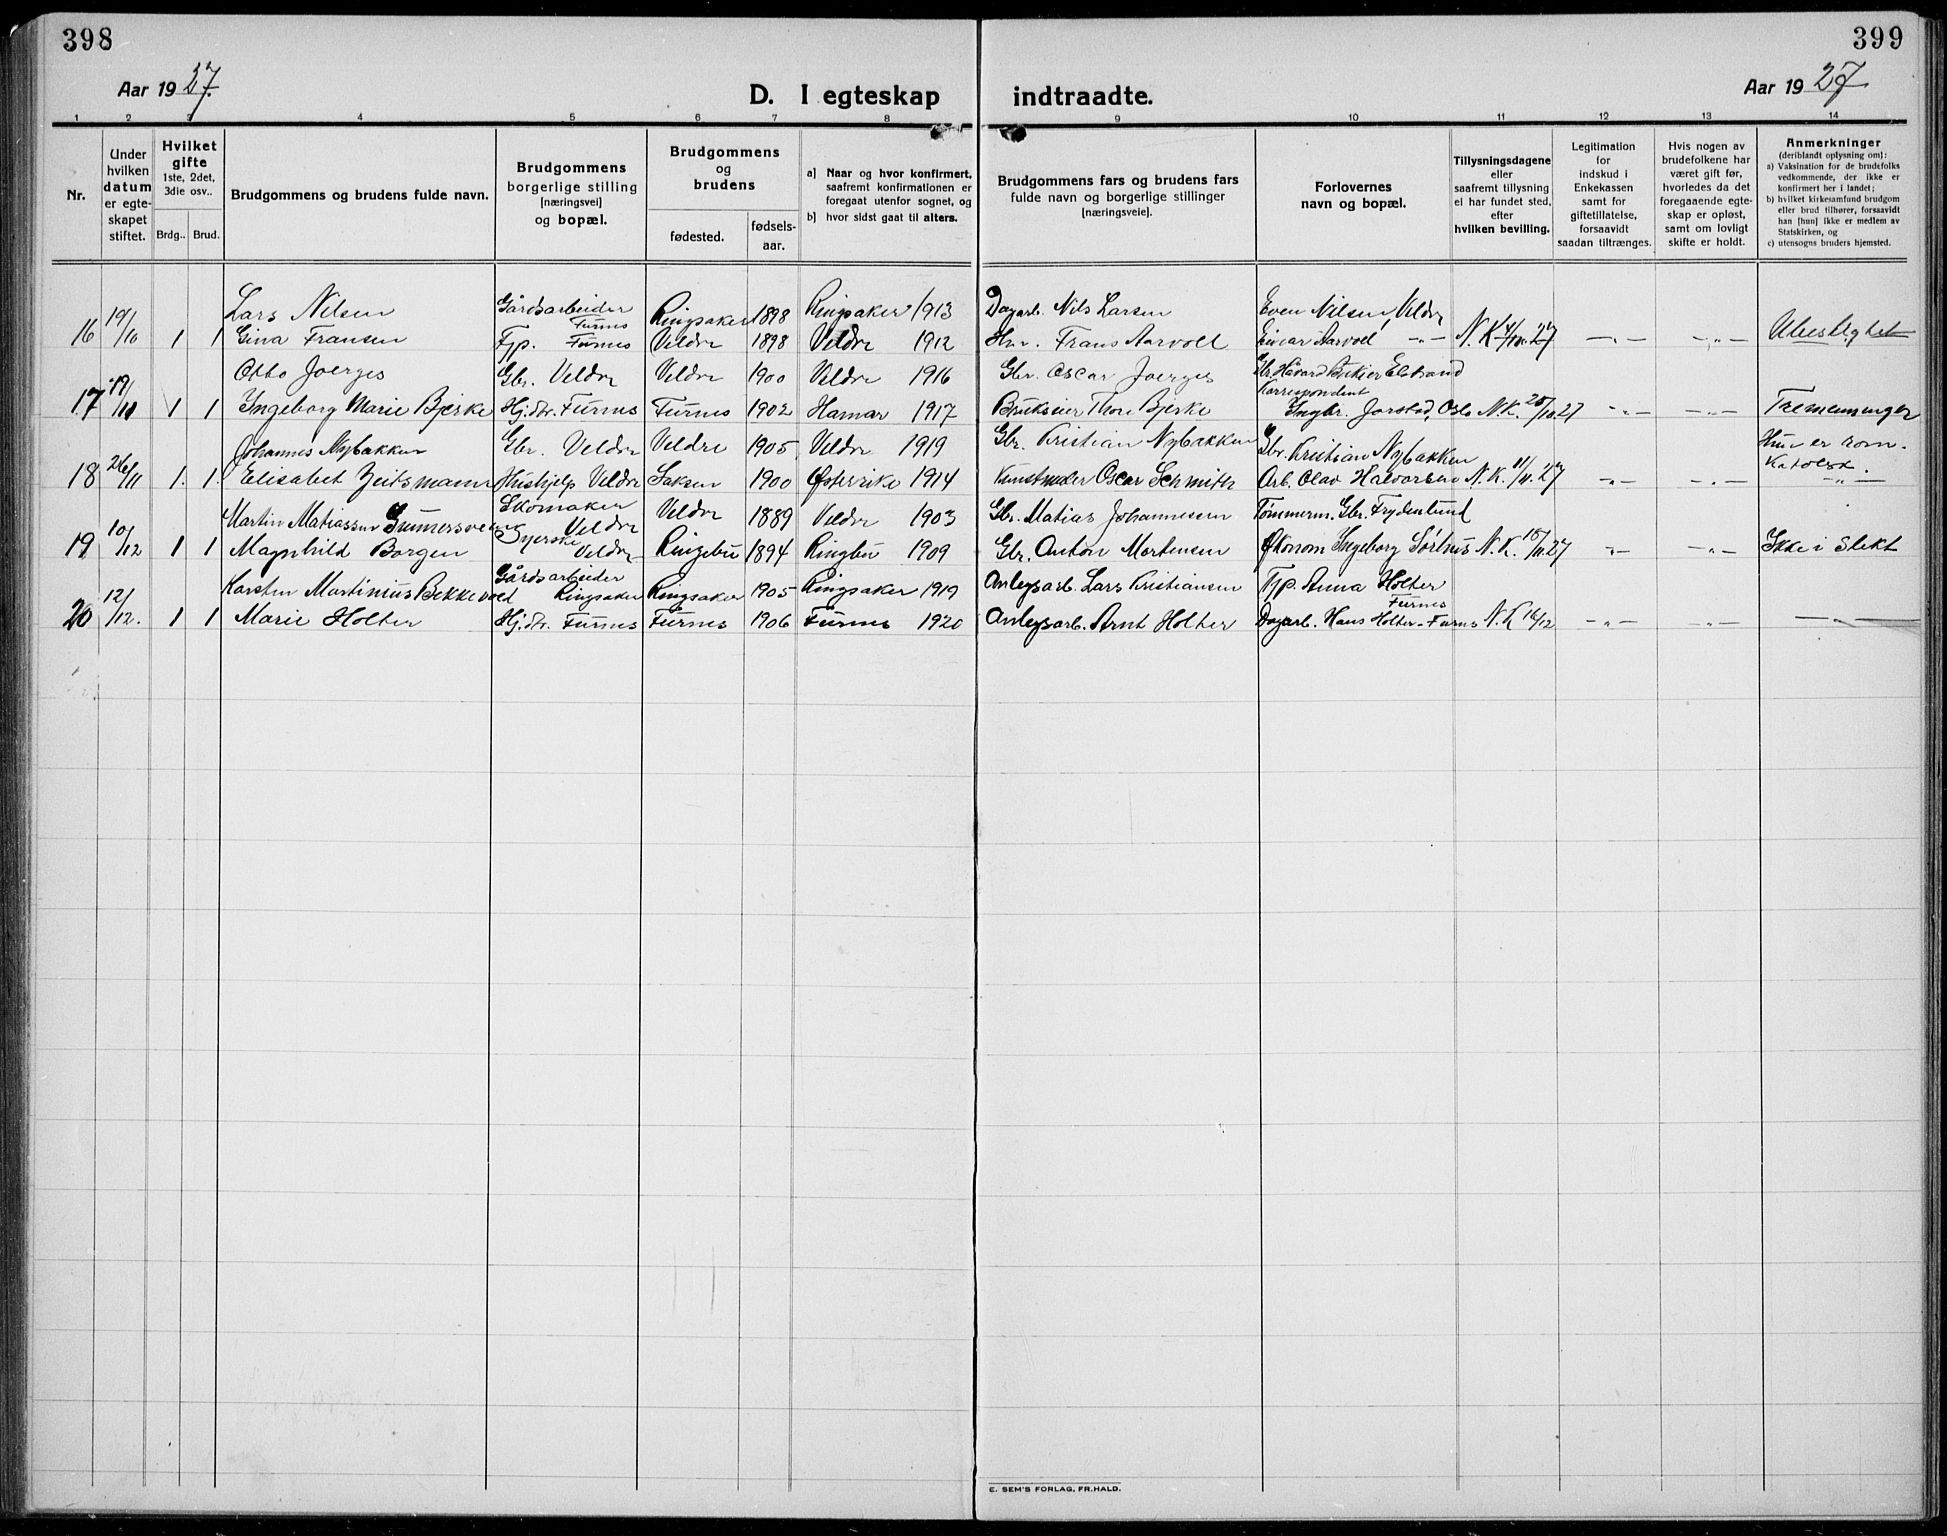 398
399
Aar 1927.
D. I egteskap indtraadte.
Aar 1927
1 2 3 4 5 6 7 8 9 10 11 12 13 14
Nr.
Under hvilken datum er egte-skapet stiftet.
Hvilket gifte 1ste, 2det, 3die osv..
Brdg.. Brud.
Brudgommens og brudens fulde navn.
Brudgommens borgerlige stilling [næringsvei] og bopæl.
Brudgommens og brudens
fødested.
fødsels-aar.
a) Naar og hvor konfirmert, saafremt konfirmationen er foregaat utenfor sognet, og
b) hvor sidst gaat til alters.
Brudgommens fars og brudens fars fulde navn og borgerlige stillinger [næringsveie].
Forlovernes navn og bopæl.
Tillysningsdagene eller saafremt tillysning ei har fundet sted, efter hvilken bevilling.
Legitimation for indskud i Enkekassen samt for giftetillatelse, forsaavidt saadan tiltrænges.
Hvis nogen av brudefolkene har været gift før, hvorledes da det foregaaende egte-skap er opløst, samt om lovligt skifte er holdt.
Anmerkninger
(deriblandt oplysning om):
a) Vaksination for de brudefolks vedkommende, der ikke er konfirmert her i landet;
b) hvilket kirkesamfund brudgom eller brud tilhører, forsaavidt han [hun] ikke er medlem av Statskirken, og
c) utensogns bruders hjemsted.
Lars Nilsen Gårdsarbeider Furnes Ringsaker 1898 Ringsaker 1913 Dagarb. Nils Larsen Even Nilsen, Veldre
16 19/10 1 1 Gina Fransen Tjp. Furnes Veldre 1898 Veldre 1912 Frans Aarvold Einar Aarvold -"- N.K. 4/10 27 -"- -"- Ubeslegtet
Otto Joerges Gbr. Veldre Veldre 1900 Veldre 1916 Gbr. Oscar Joerges Elstrand
17 19/11 1 1 Ingeborg Marie Bjerke Hj.dtr. Furnes Furnes 1902 Hamar 1917 Brukseier Thore Bjerke Korrespondent Ingbr. Jorstad, Oslo N.K. 25/10 27 -"- -"- Tremenninger
Johannes Nybakken Gbr. Veldre Veldre 1905 Veldre 1919 Gbr. Kristian Nybakken Gbr. Kristian Nybakken Hun er rom. katolsk.
18 26/11 1. 1. Elisabet Zeitsmann Hushjelp Veldre Saksen 1900 Østerrike 1914 Oscar Schmith Arb. Olav Halvorsen N.K. 11/11 27 -"- -"- -"-
Martin Matiassen Gunnersveen Skomaker Veldre Veldre 1889 Veldre 1903 Gbr. Matias Johannessen Tømmerm. Gbr. Frydenlund
19 10/12 1 1 Magnhild Borgen Syerske Veldre Ringebu 1894 Ringbu 1909 Gbr. Anton Mortensen Økonom Ingeborg Sørlus N.K. 18/11 27 -"- -"- Ikke i slekt
Karsten Martinius Bekkevold Gårdsarbeider Ringsaker Ringsaker 1905 Ringsaker 1919 Anlegsarb. Lars Kristiansen Tjp. Anna Holter Furnes
20 12/12. 1 1 Marie Holter Hj.dtr. Furnes Furnes 1906 Furnes 1920 Anlegsarb. Arnt Holter Dagarb. Hans Holter - Furnes N.K. 16/12 -"- -"- -"-
E. SEM'S FORLAG, FR.HALD.